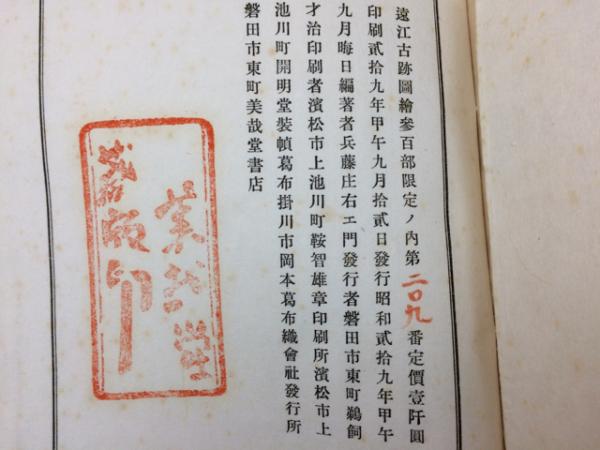 遠江古跡圖繪參百部限定ノ內第二〇九番定價壹阡圓
印刷貳拾九年甲午九月拾貳日發行昭和貳拾九年甲午
九月晦日編著者兵藤庄右エ門發行者磐田市東町鵜飼
才治印刷者濱松市上池川町鞍智雄章印刷所濱松市上
池川町開明堂裝幀葛布掛川市岡本葛布織會社發行所
磐田市東町美哉堂書店